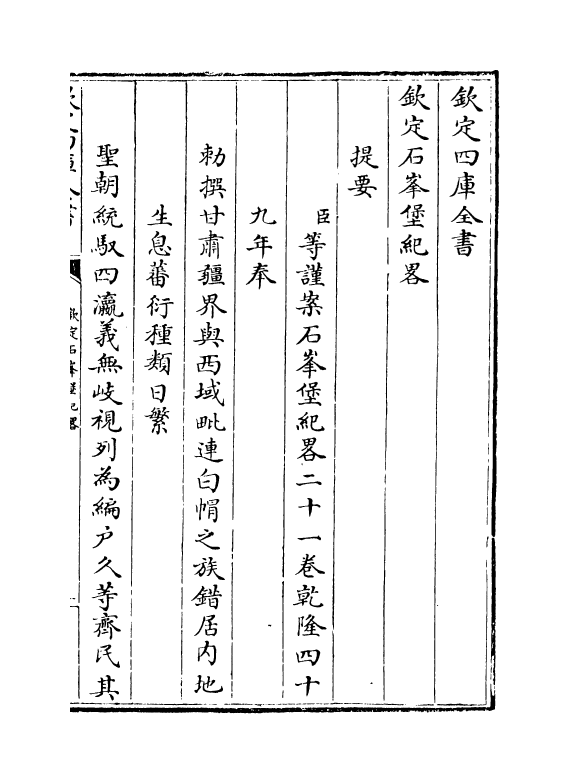 欽定四庫全書
欽定石峯堡紀畧
提要
臣等謹案石峯堡紀畧二十一卷乾隆四十
九年奉
勅撰甘肅疆界與西域毗連白帽之族錯居内地
生息蕃衍種類日繁
聖朝統馭四瀛義無歧視列為編户久等齊民其
欽定石峯堡紀畧